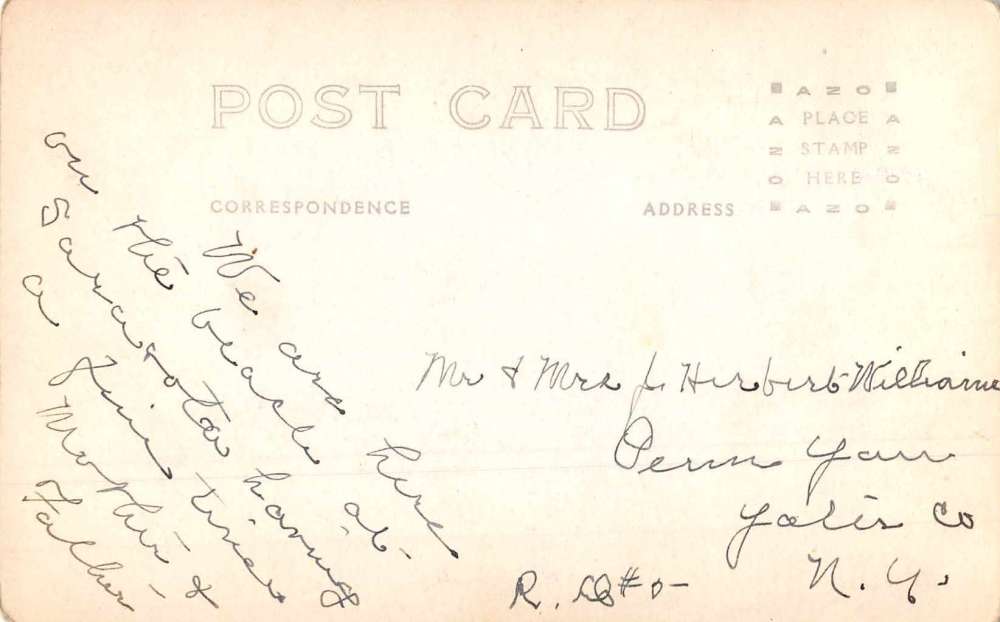 POST CARD
A Z O
A PLACE A
Z STAMP Z
O HERE O
A Z O
CORRESPONDENCE
ADDRESS
We are here
on the beach at
Sarasota having
a fine time
Mother &
Father
Mr & Mrs J. Herbert Williams
Penn Yan
Yates Co
N. Y.
R. D #5